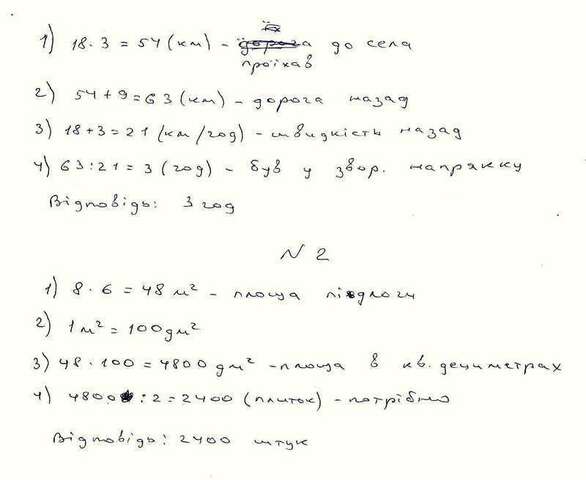 1) 18·3 = 54 (км) - до села
проїхав
2) 54+9=63 (км) - дорога назад
3) 18+3=21 (км/год) - швидкість назад
4) 63:21=3 (год) - був у звор. напрямку
Відповідь: 3 год
N 2
1) 8·6=48 м² - площа підлоги
2) 1м²=100дм²
3) 48·100=4800 дм² - площа в кв. дециметрах
4) 4800:2=2400 (плиток) - потрібно
Відповідь: 2400 штук